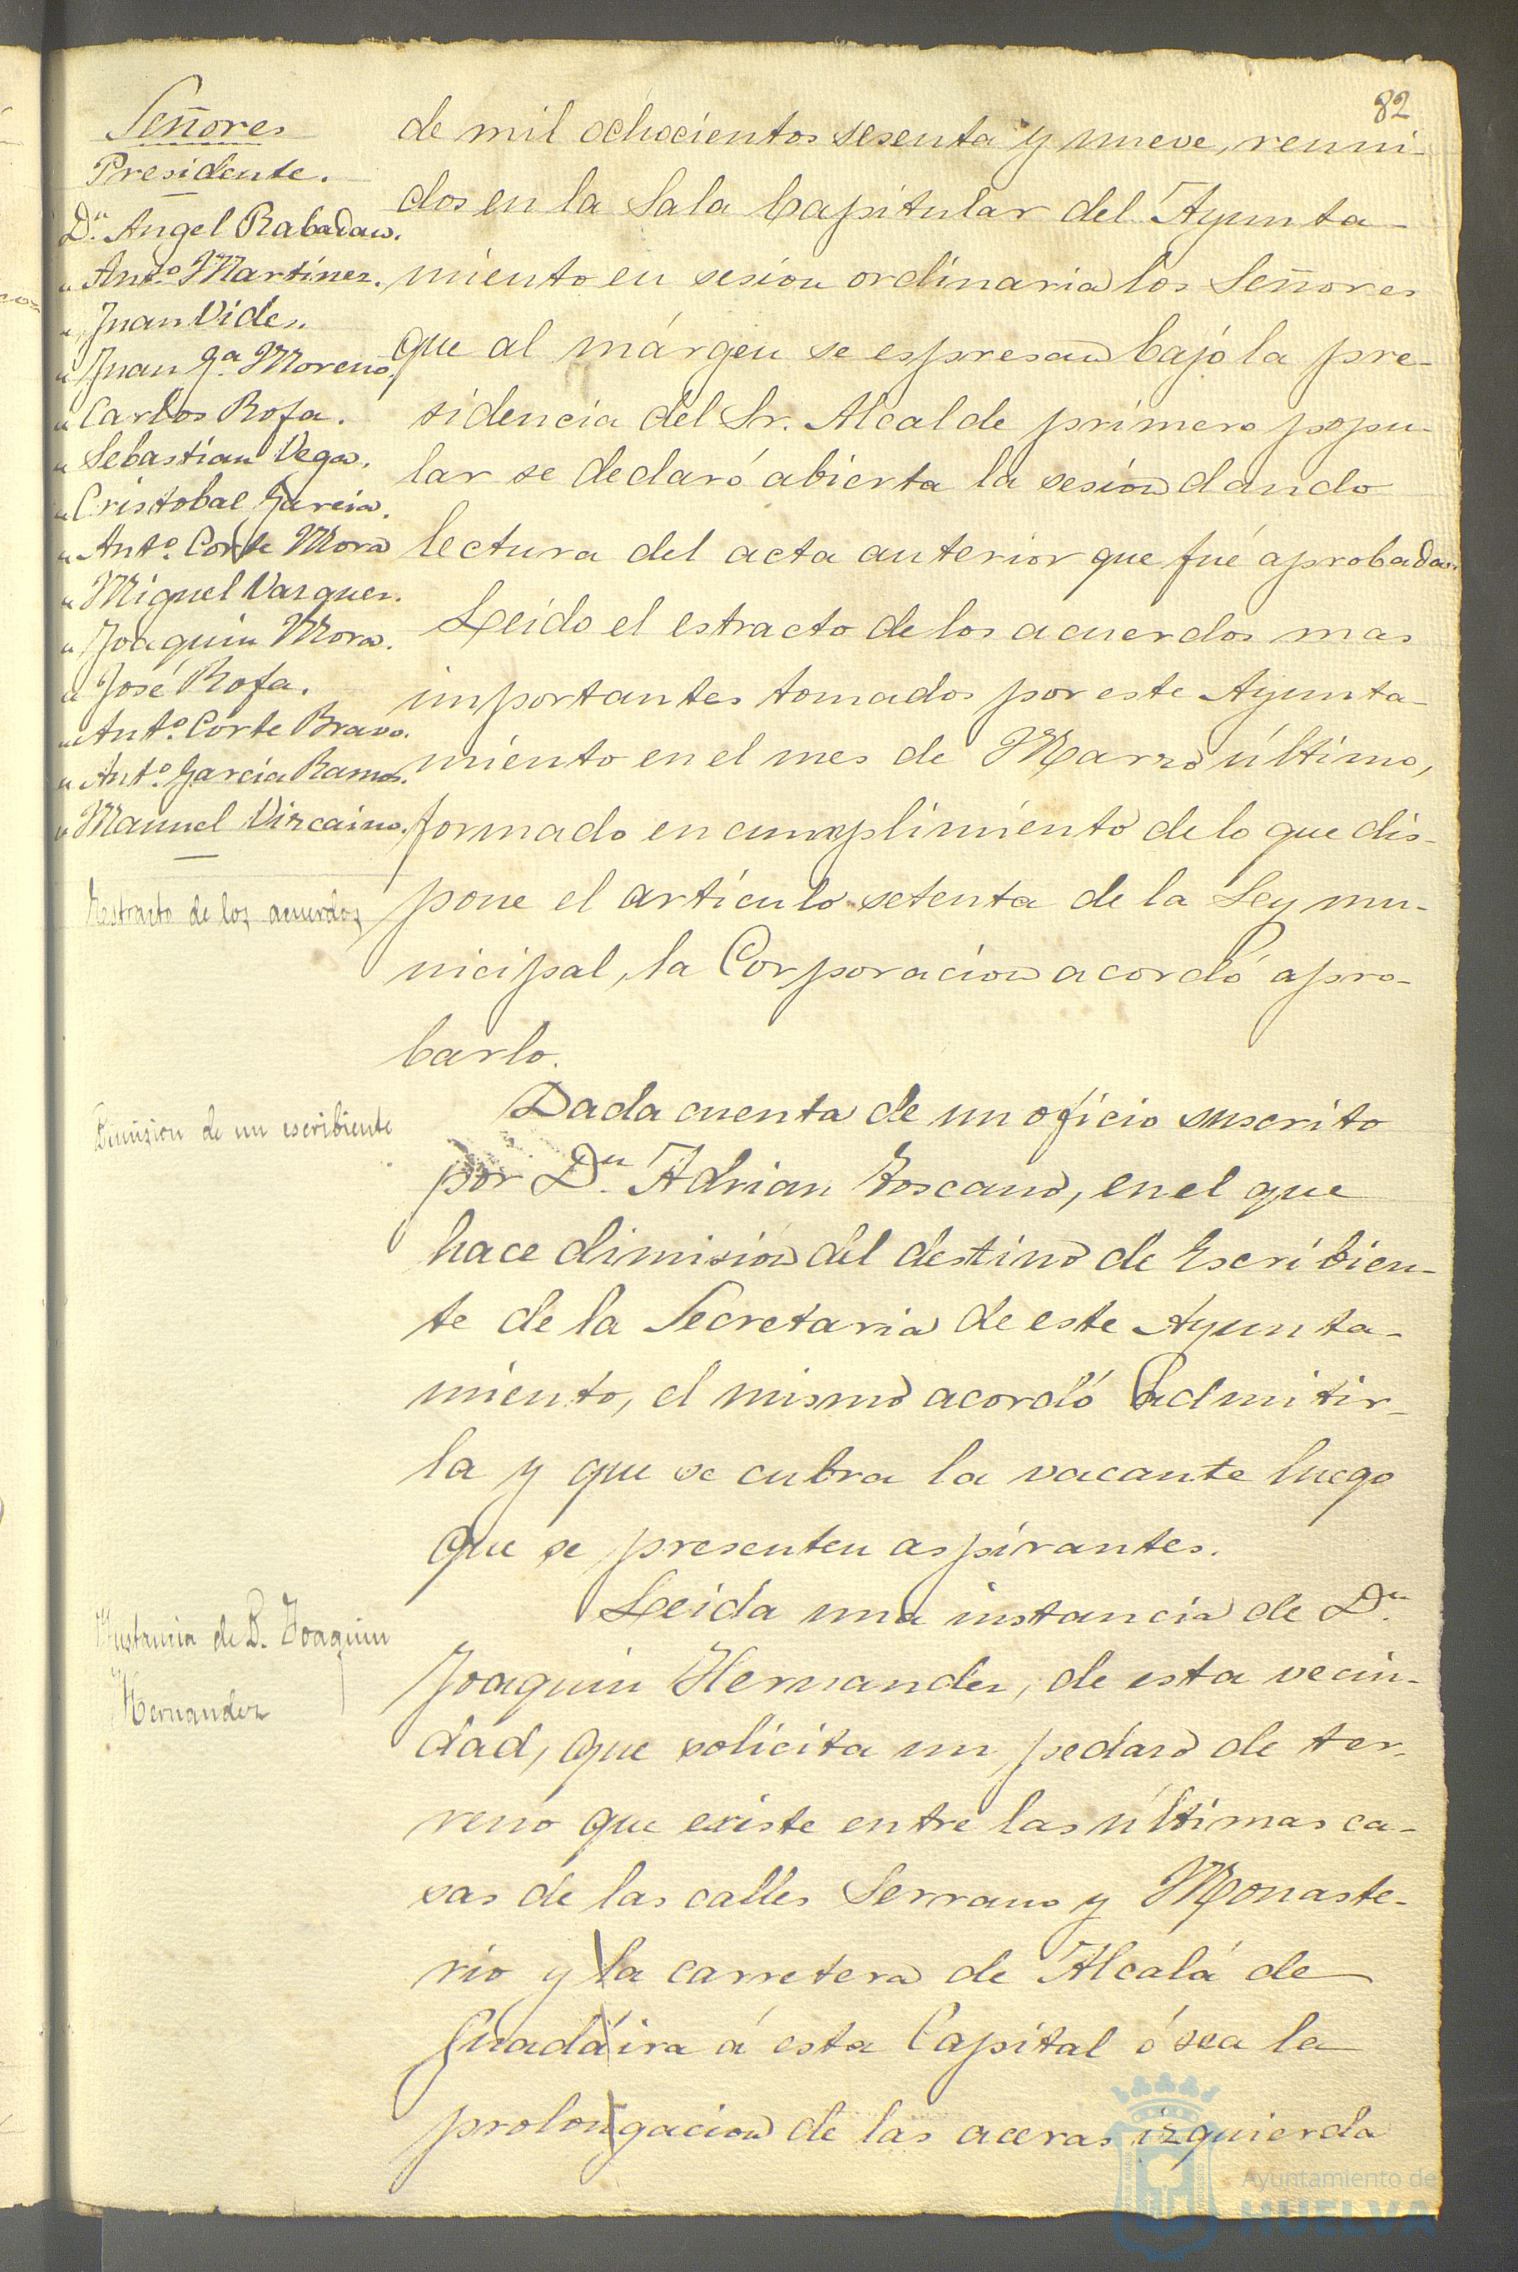 82
Señores
Presidente.
Dn. Angel Rabadan.
" Anto. Martinez.
" Juan Vides.
" Juan Ga. Moreno.
" Carlos Rofa.
" Sebastian Vega.
" Cristobal Garcia.
" Anto. Corte Mora
" Miguel Vazquez.
" Joaquin Mora.
" José Rofa.
" Anto. Corte Bravo.
" Anto. Garcia Ramos.
" Manuel Vizcaino.
de mil ochocientos sesenta y nueve, reuni-
dos en la Sala Capitular del Ayunta-
miento en sesion ordinaria los Señores
que al márgen se espresan bajo la pre-
sidencia del Sr. Alcalde primero popu-
lar se declaró abierta la sesión dando
lectura del acta anterior que fué aprobada.
Estracto de los acuerdos
Leido el estracto de los acuerdos mas
importantes tomados por este Ayunta-
miento en el mes de Marzo último,
formado en cumplimiento de lo que dis-
pone el artículo setenta de la Ley mu-
nicipal, la Corporacion acordó apro-
barlo.
Dimision de un escribiente
Dada cuenta de un oficio suscrito
por Dn. Adrian Toscano, en el que
hace dimisión del destino de Escribien-
te de la Secretaria de este Ayunta-
miento, el mismo acordó admitir-
la y que se cubra la vacante luego
que se presenten aspirantes.
Instancia de D. Joaquin
Hernandez
Leida una instancia de Dn.
Joaquin Hernandez, de esta vecin-
dad, que solicita un pedazo de ter-
reno que existe entre las últimas ca-
sas de las calles Serrano y Monaste-
rio y la carretera de Alcalá de
Guadaira á esta Capital ó sea la
prolongacion de las aceras izquierda
Ayuntamiento de
HUELVA